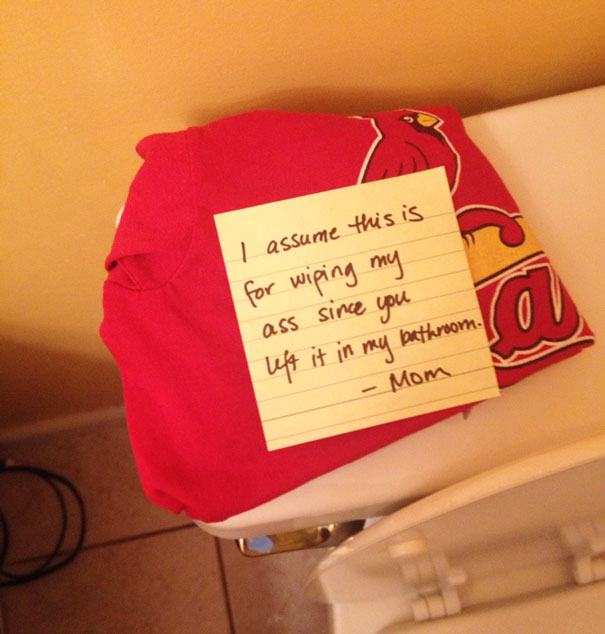 I assume this is
for wiping my
ass since you
left it in my bathroom.
- Mom
a